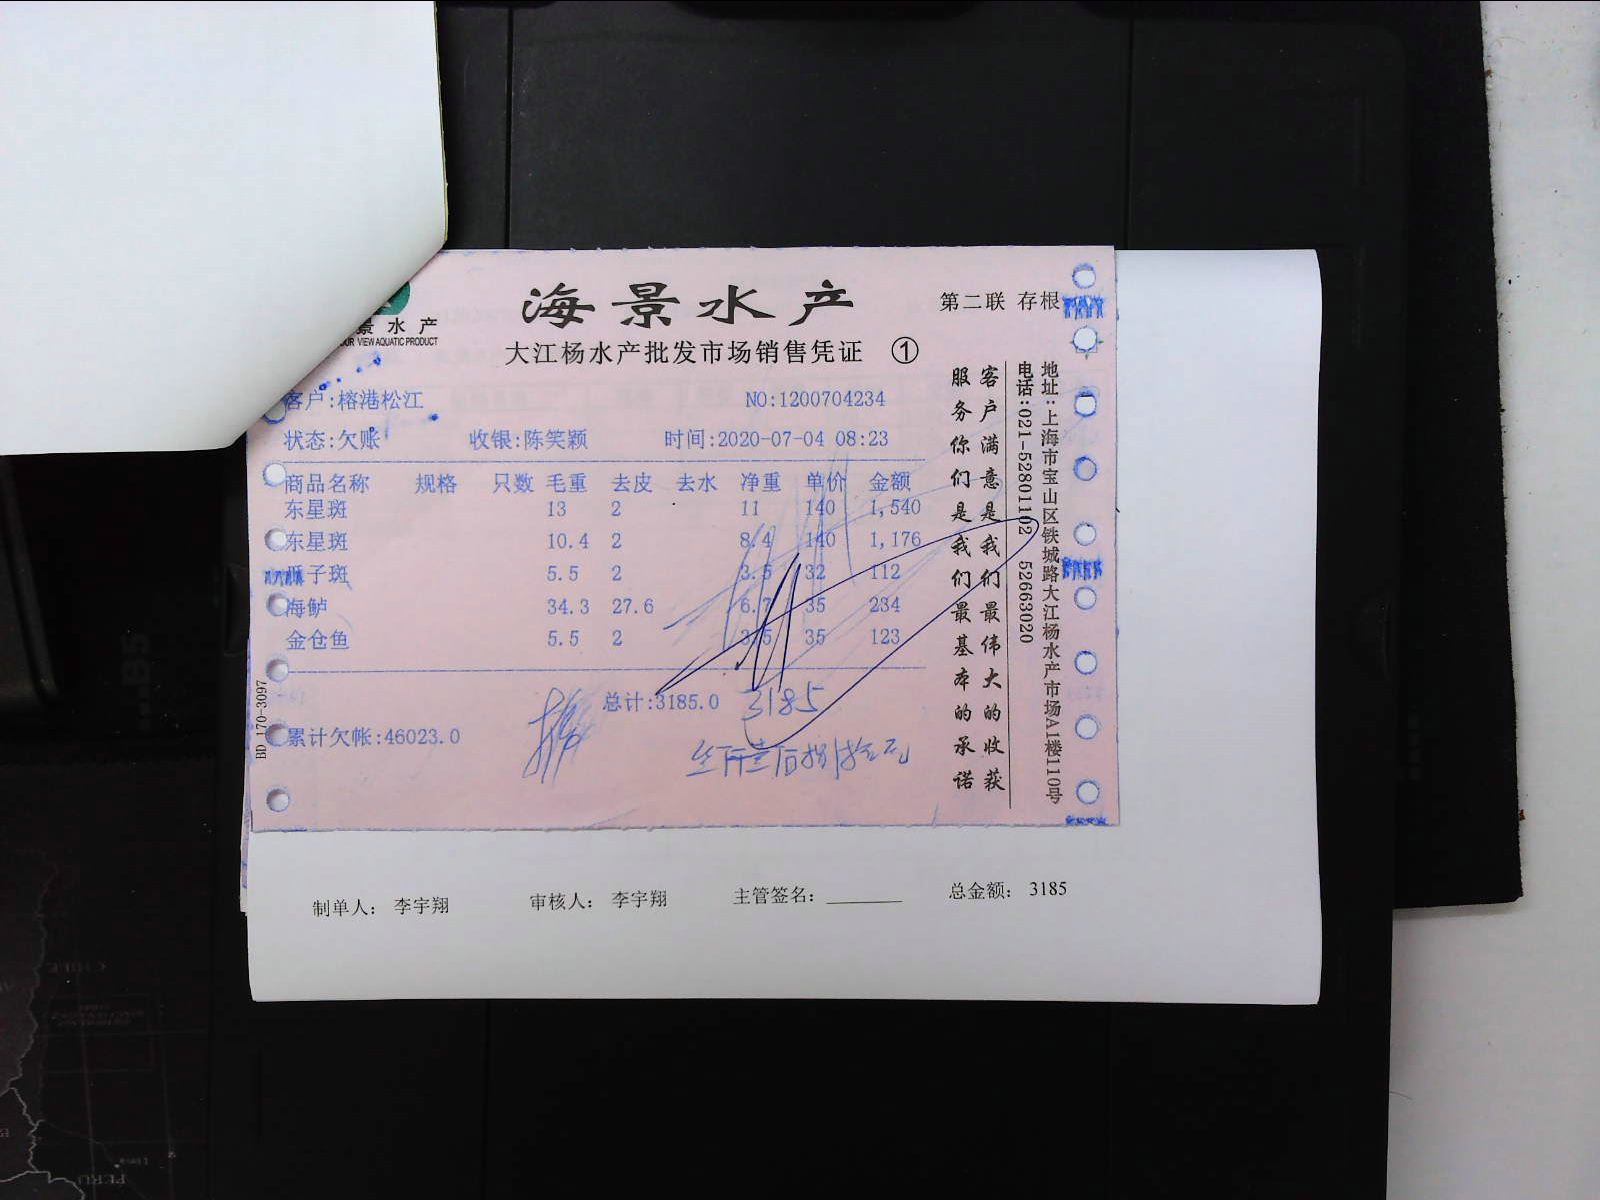 海景水产
第二联 存根
景水产
OUR VIEW AQUATIC PRODUCT
大江杨水产批发市场销售凭证 ①
客户:榕港松江 NO:1200704234
状态:欠账 收银:陈笑颖 时间:2020-07-04 08:23
商品名称 规格 只数 毛重 去皮 去水 净重 单价 金额
东星斑 13 2 11 140 1,540
东星斑 10.4 2 8.4 140 1,176
子斑 5.5 2 3.5 32 112
海鲈 34.3 27.6 6.7 35 234
金仓鱼 5.5 2 3.5 35 123
总计:3185.0 3185
累计欠帐:46023.0
BD 170-3097
客户满意是我们最伟大的收获
服务你们是我们最基本的承诺
地址:上海市宝山区铁城路大江杨水产市场A1楼110号
电话:021-52801102 52663020
制单人: 李宇翔 审核人: 李宇翔 主管签名: 总金额: 3185